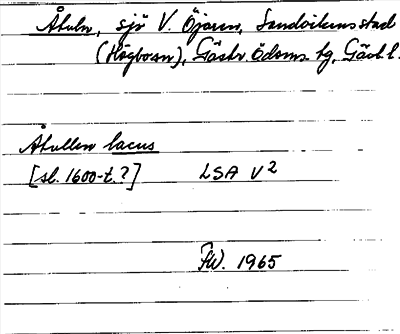 Åkuln, sjö V. Öjaren, Sandvikens stad
(Högbosn), Gästr. ö. doms. tg, Gävl. l.
Åkullen lacus
[sl. 1600-t.?] LSA V²
FW. 1965